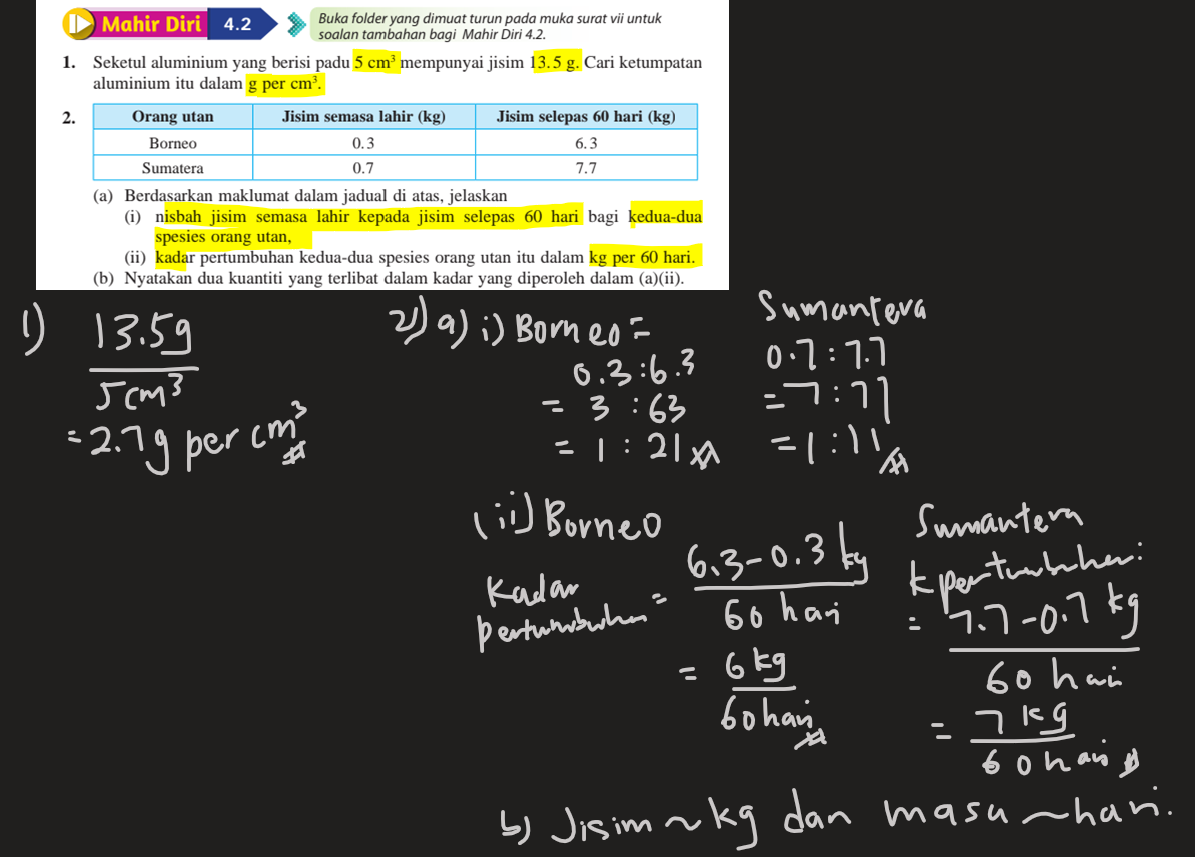 Mahir Diri 4.2
Buka folder yang dimuat turun pada muka surat vii untuk
soalan tambahan bagi Mahir Diri 4.2.
1. Seketul aluminium yang berisi padu 5 cm³ mempunyai jisim 13.5 g. Cari ketumpatan
aluminium itu dalam g per cm³.
2.
Orang utan Jisim semasa lahir (kg) Jisim selepas 60 hari (kg)
Borneo 0.3 6.3
Sumatera 0.7 7.7
(a) Berdasarkan maklumat dalam jadual di atas, jelaskan
(i) nisbah jisim semasa lahir kepada jisim selepas 60 hari bagi kedua-dua
spesies orang utan,
(ii) kadar pertumbuhan kedua-dua spesies orang utan itu dalam kg per 60 hari.
(b) Nyatakan dua kuantiti yang terlibat dalam kadar yang diperoleh dalam (a)(ii).
1) 13.5g
5cm³
=2.7g per cm³
2) a) i) Borneo =
0.3:6.3
= 3:63
= 1:21
Sumantera
0.7:7.7
=7:77
=1:11
(ii) Borneo
Kadar
pertumbuhan = 6.3-0.3 kg
60 hari
= 6kg
60 hari
Sumantera
k pertumbuhan:
= 7.7-0.7 kg
60 hari
= 7kg
60 hari
b) Jisim ~ kg dan masa ~ hari.